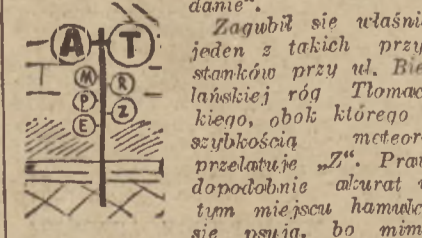 A T
M R
P Z
E
danie“.
Zagubił się właśnie
jeden z takich przy-
stanków przy ul. Bie-
lańskiej róg Tłomac-
kiego, obok którego z
szybkością meteora
przelatuje „Z“. Praw-
dopodobnie akurat w
tym miejscu hamulce
się psują, bo mimo